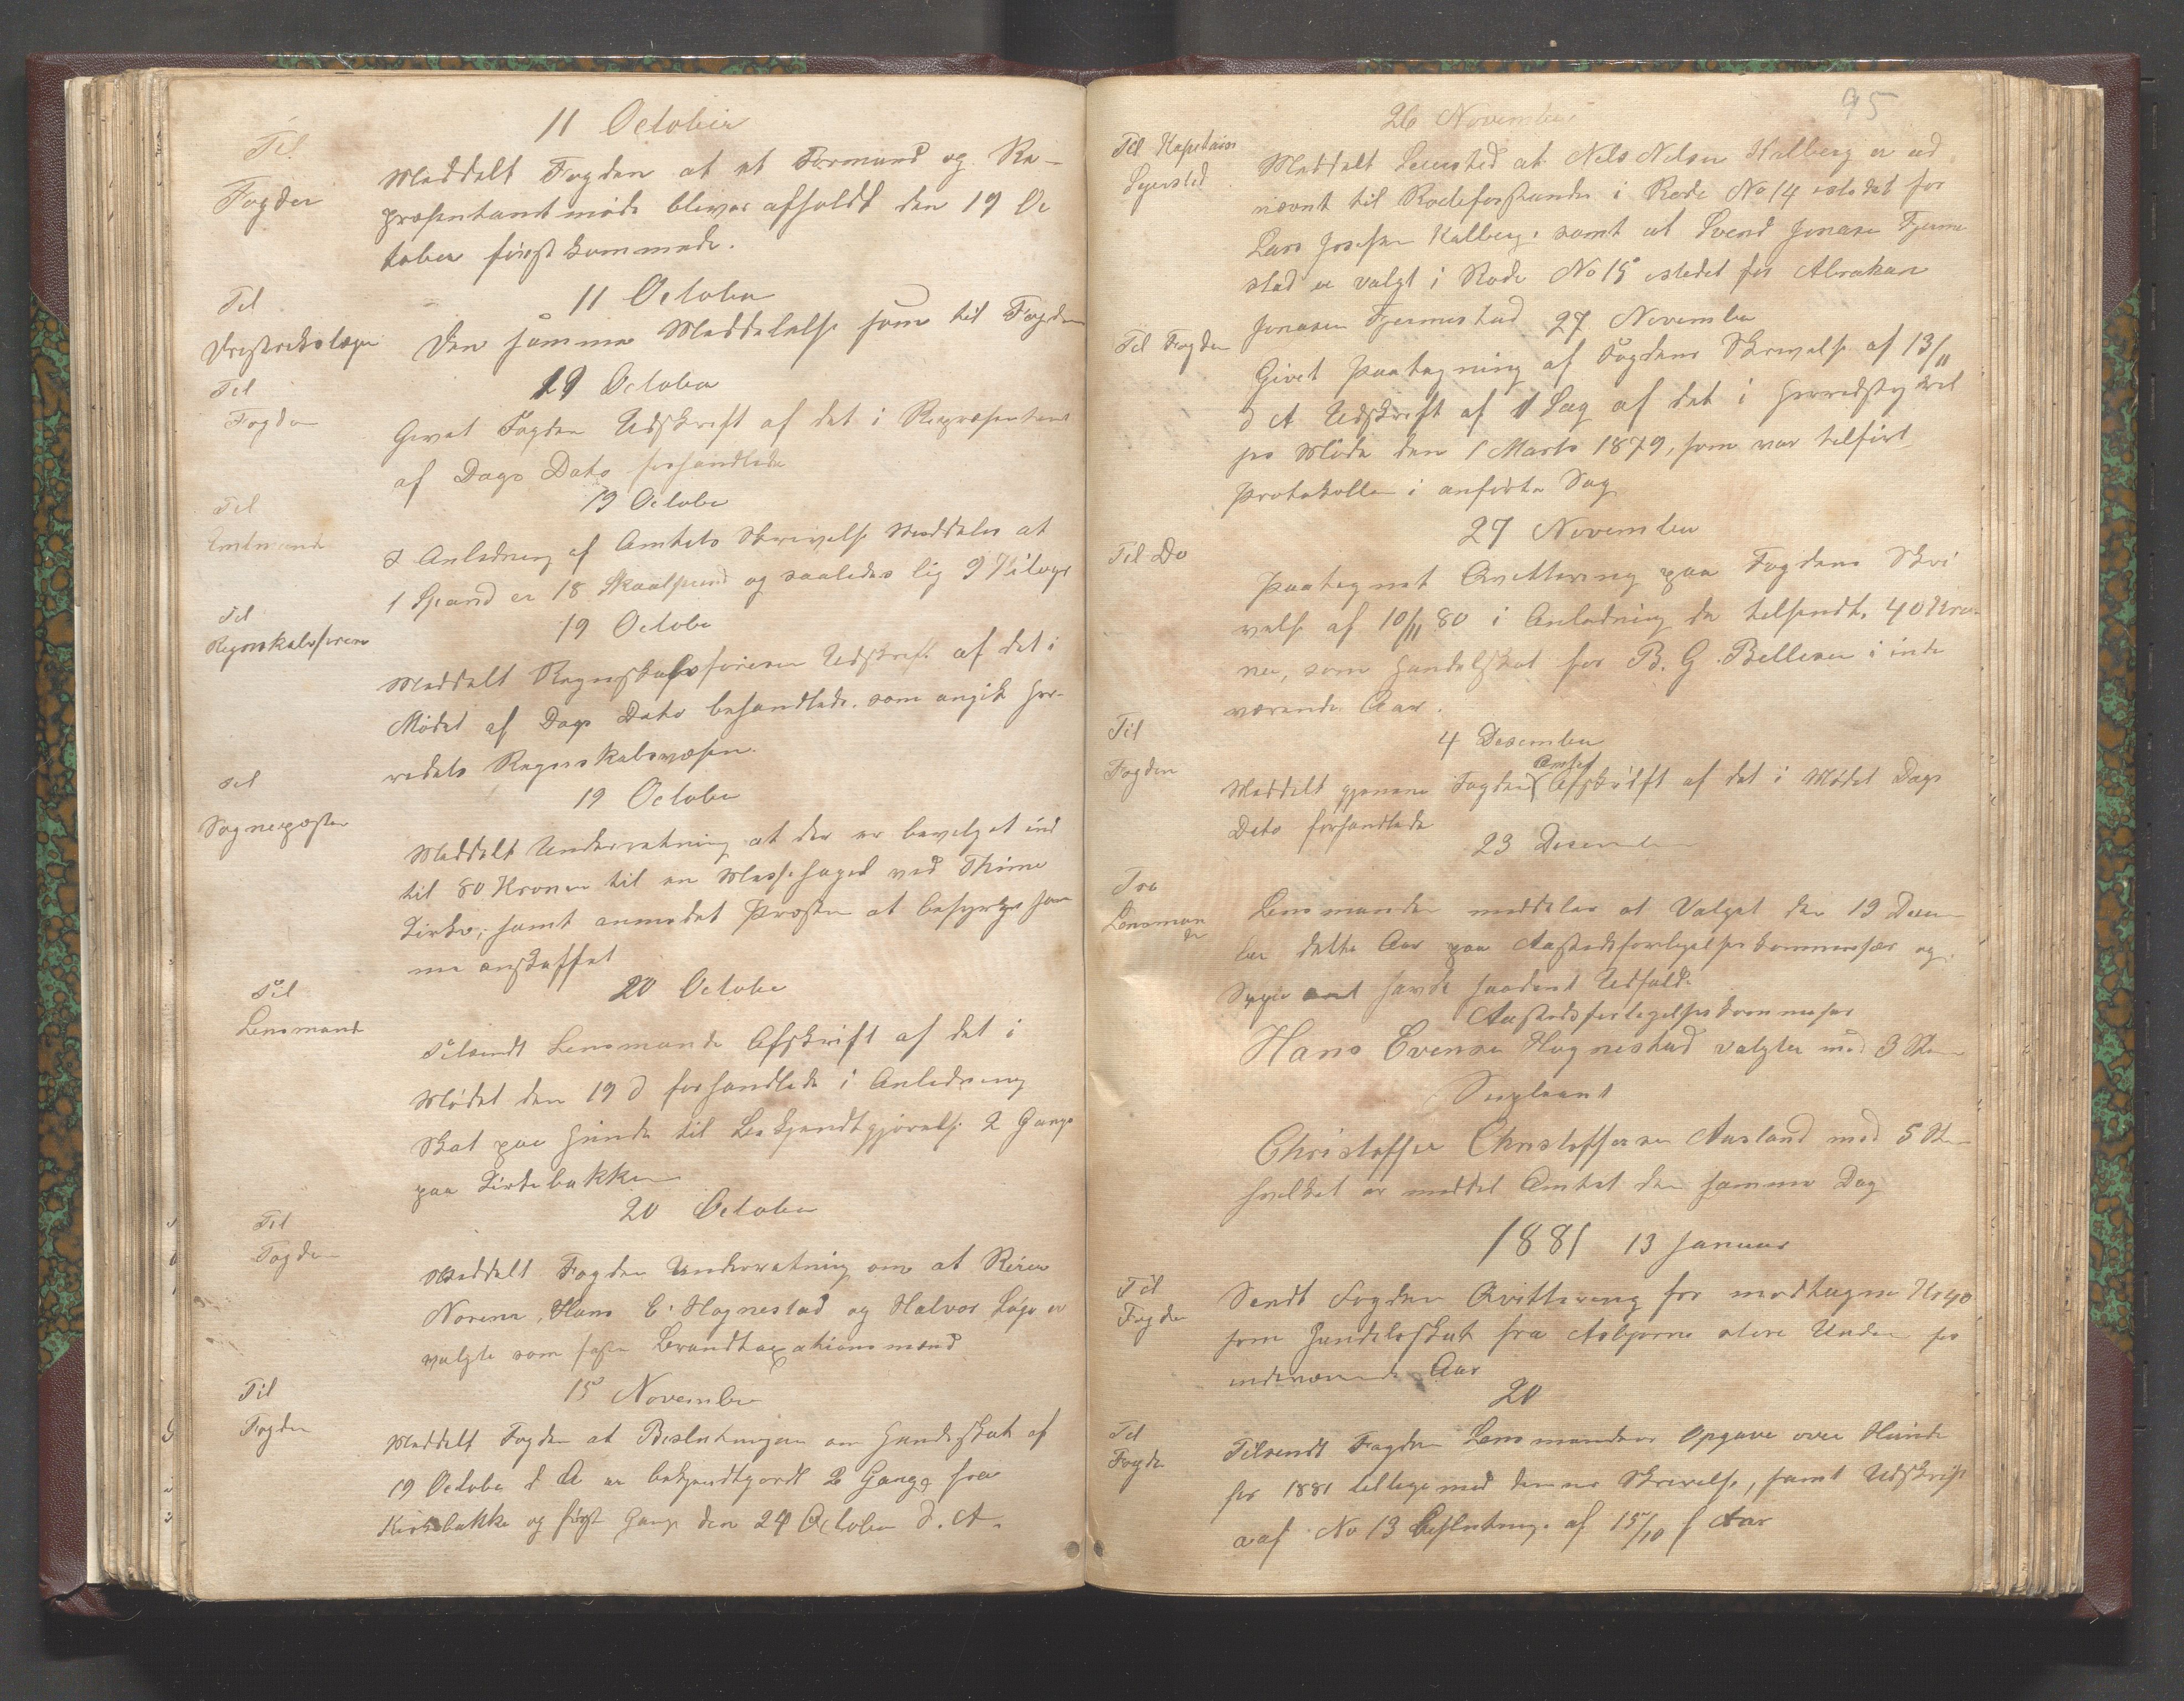 11 October
Til
Fogden
Meddelt Fogden at et Formand og Re-
præsentantmøde bliver afholdt den 19 Oc
tober førstkommende.
11 October
Til
Distriktslægen
Den samme Meddelelse som til Fogden
19 October
Til
Fogden
Givet Fogden Udskrift af det i Repræsentant
af Dags Dato forhandlede
19 October
Til
Amtmanden
I Anledning af Amtets Skrivelse Meddeles at
1 Spand er 18 Skaalpund og saaledes lig 9 Kilogr
19 October
Til
Regnskabsføreren
Meddelt Regnskabsføreren Udskrift af det i
Mødet af Dags Dato behandlede, som angik Her-
redets Regnskabsvæsen.
19 October
Til
Sognepræsten
Meddelt Underretning at der er bevilget ind
til 80 Kroner til en Messehagel ved Thime
Kirke, samt anmodet Præsten at besørge sam
me anskaffet
20 October
Til
Lensmand
Tilsendt Lensmanden Afskrift af det i
Mødet den 19 d forhandlede i Anledning
Skat paa Hunde til Bekjendtgjørelse 2 Gange
paa Kirkebakken
20 October
Til
Fogden
Meddelt Fogden Underretning om at Reier
Norem, Hans E. Hognestad og Halvor Løge er
valgte som faste Brandtaxationsmænd
15 November
Til
Fogden
Meddelt Fogden at Beslutningen om Hundeskat af
19 October d A er bekjendtgjordt 2 Gange fra
Kirkebakke og først Gang den 24 October d. A.
95
26 November
Til Kapetain
Seiersted
Meddelt Seiersted at Nels Nelsen Kalberg er ud
nævnt til Rodeforstander i Rode No 14 istedet for
Lars Josefsen Kalberg, samt at Svend Jonasen Fjerme
stad er valgt i Rode No 15 istedet for Abraham
Jonasen Fjermestad
27 November
Til Fogden
Givet Paategning af Fogdens Skrivelse af 13/11
d A Udskrift af 1 Sag af det i Herredstyrel
ses Møde den 1 Marts 1879, som var tilført
Protokollen i anførte Sag
27 November
Til Do
Paategnet Qvittering paa Fogdens Skri
velse af 10/11 80 i Anledning de tilsendte 40 Kro
ner, som Handelskat for B. G. Bellesen i inde
værende Aar.
4 Desember
Til
Fogden
Meddelt gjennem Fogden Amtet Afskrift af det i Mødet Dags
Dato forhandlede
23 Desember
Fra
Lensman
den
Lensmanden meddeler at Valget den 19 Decem
ber dette Aar paa Aastedsforligelseskommissær og
Supleant havde saadant Udfald.
Aastedsforligelseskommissær
Hans Evensen Hognestad valgtes med 3 Stem
Supleant
Christoffer Christoffersen Aasland med 5 Stem
hvilket er meddel Amtet den samme Dag
1881 13 Januar
Til
Fogden
Sendt Fogden Qvittering for modtagne Kr 40
som Handelsskat fra Asbjørn for
indeværende Aar
20
Til
Fogden
Tilsendt Fogden Lensmandens Opgave over Hunde
for 1881 tillige med dennes Skrivelse, samt Udskrift
af No 13 Beslutning af 15/10 f Aar